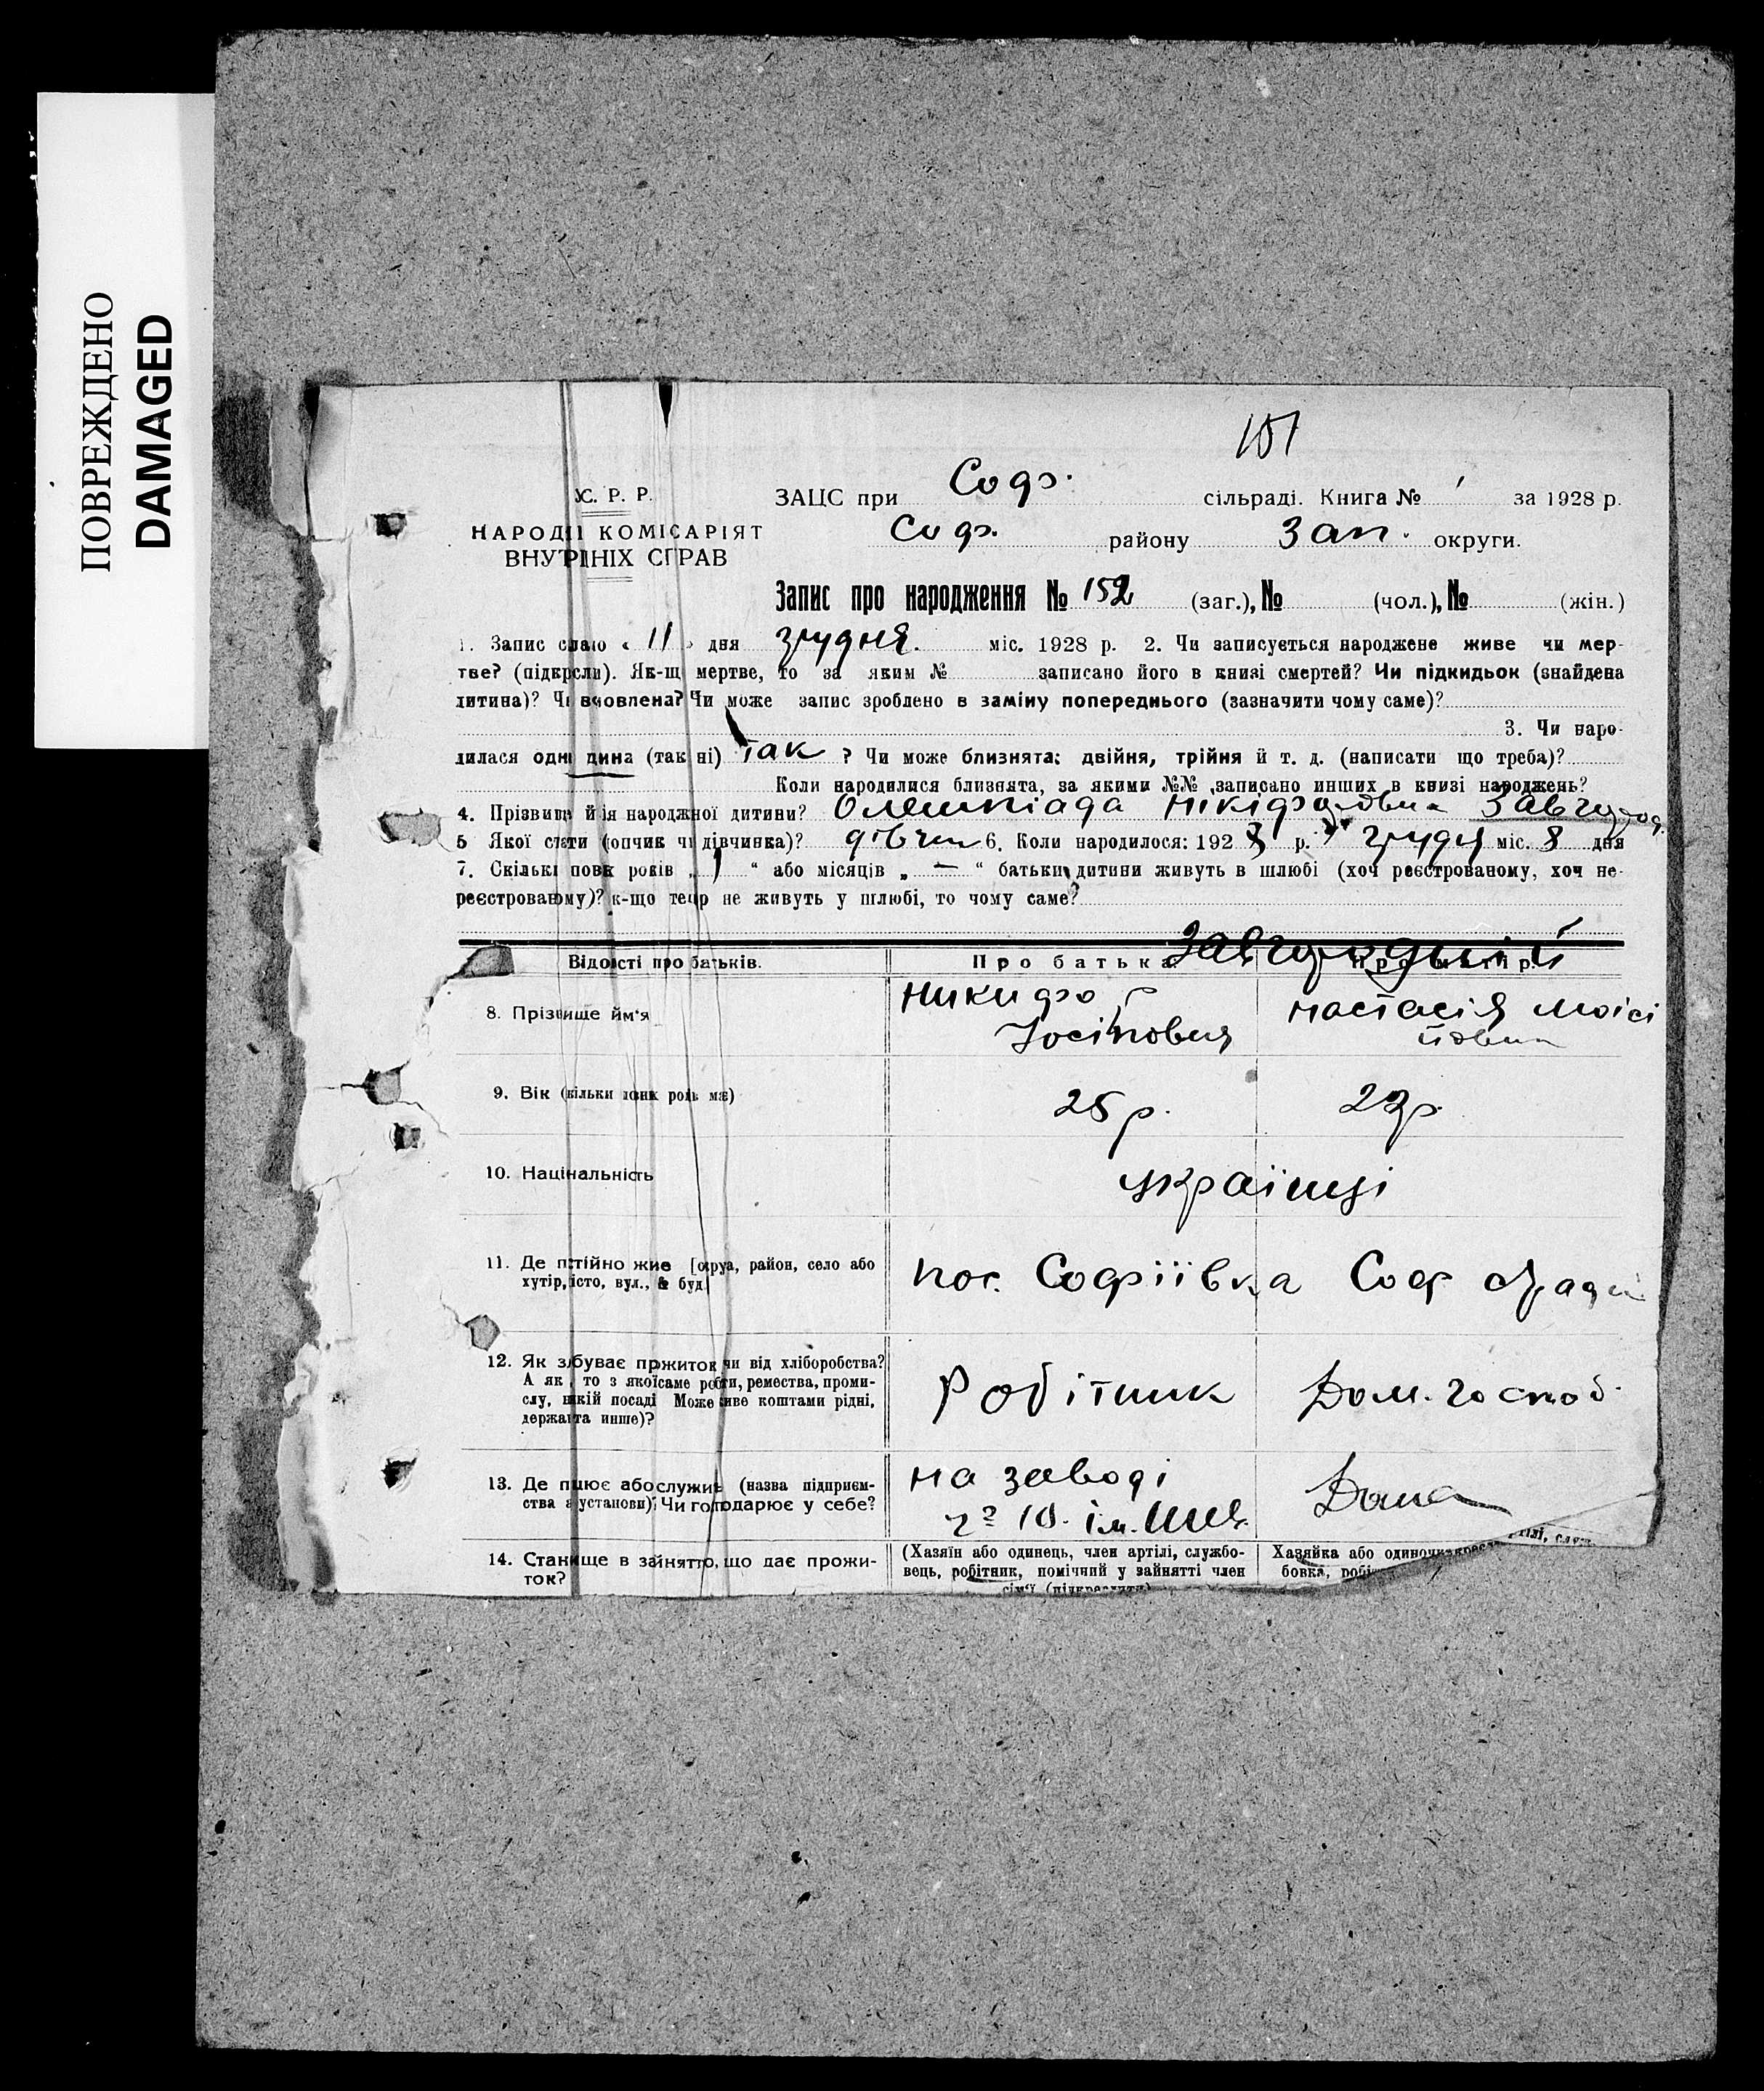 ПОВРЕЖДЕНО
DAMAGED
107
У. С. Р. Р.
ЗАЦС при Соф. сільраді. Книга № 1 за 1928 р.
НАРОДНІЙ КОМІСАРІЯТ
Соф. району Зап. округи.
ВНУТРІШНІХ СПРАВ
Запис про народження № 152 (заг.), № (чол.), № (жін.)
1. Запис склаю « 11 » дня грудня. міс. 1928 р. 2. Чи записується народжене живе чи мер-
тве? (підкрсли). Як-що мертве, то за яким № записано його в книзі смертей? Чи підкидьок (знайдена
дитина)? Чи вновлена? Чи може запис зроблено в заміну попереднього (зазначити чому саме)?
3. Чи наро-
дилася одна дина (так ні) так ? Чи може близнята: двійня, трійня й т. д. (написати що треба)?
Коли народилися близнята, за якими №№ записано инших в книзі народжень?
4. Прізвище й ім'я народжної дитини? Олимпіада Нікіфоровна Завгород.
5 Якої стати (хлопчик чи дівчинка)? дівчин 6. Коли народилося: 1928 р. грудня міс. 8 дня
7. Скільки повн років „ 1 “ або місяців „ — “ батьки дитини живуть в шлюбі (хоч реєстрованому, хоч не-
реєстрованому)? Як-що тепер не живуть у шлюбі, то чому саме?
Завгородній
Відомості про батьків. Про батька Про матір.
8. Прізвище йм'я Никифор Настасія Моісі
Йосіповия йовна
9. Вік (скільки повнх років має) 25 р. 22 р.
10. Національність українці
11. Де постійно живе [округа, район, село або пос. Софіївка Соф
хутір, місто, вул., № буд.]
12. Як здобуває прожиток чи від хліборобства?
А як , то з якої саме роботи, ремества, проми-
слу, на якій посаді Може живе коштами рідні,
держави та инше)? Робітник Дом. господ.
13. Де працює або служить (назва підприєм- на заводі Дома
ства а установи)? Чи господарює у себе? № 10. ім.
14. Становище в зайнятто, що дає прожи- (Хазяїн або одинець, член артілі, службо- Хазяйка або одиночка
ток? вець, робітник, помічний у зайнятті член бовка, робі
сім'ї (підкреслити)